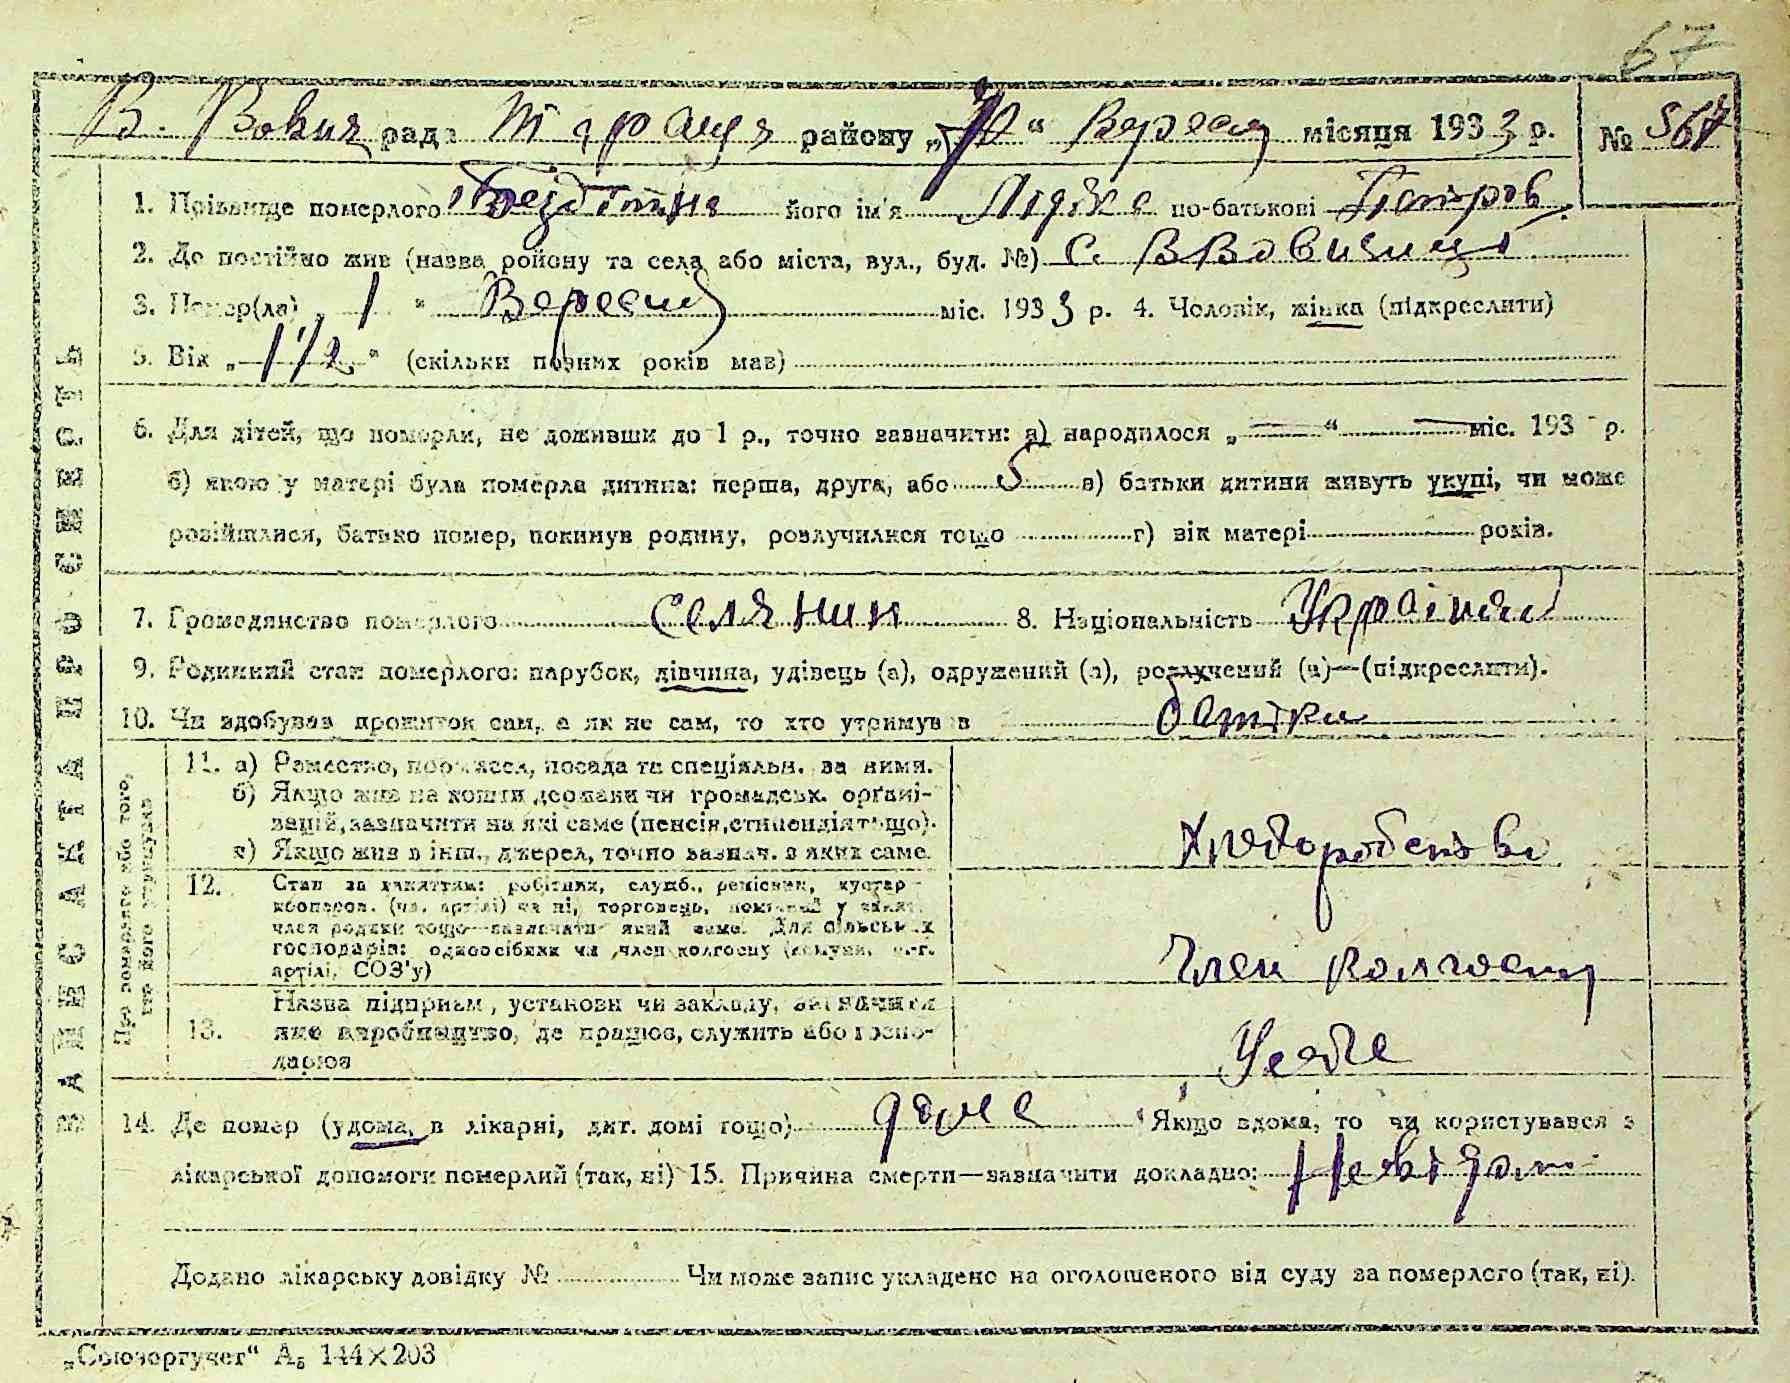 67
В. Вовня рада Тараща району „10“ Вересня місяця 1933 р. № 567
1. Прізвище померлого його ім'я Лідка по-батькові Петров.
2. Де постійно жив (назва району та села або міста, вул., буд. №) с. В Вовнянці
3. Помер(ла) „1“ Вересня міс. 1933 р. 4. Чоловік, жінка (підкреслити)
5. Вік „1 1/2“ (скільки повних років мав)
6. Для дітей, що померли, не доживши до 1 р., точно зазначити: а) народилося „—“ — міс. 193 - р.
б) якою у матері була померла дитина: перша, друга, або 5 в) батьки дитини живуть укупі, чи може
розійшлися, батько помер, покинув родину, розлучилися тощо г) вік матері років.
7. Громадянство померлого селянин 8. Національність
9. Родинний стан померлого: парубок, дівчина, удівець (а), одружений (а), розлучений (а)—(підкреслити).
10. Чи здобував прожиток сам, а як не сам, то хто утримував батьки
ЗАПИС АКТА ПРО СМЕРТЬ
Про померлого або того, хто його утримував
11. а) Ремество, промисел, посада та спеціяльн. за ними.
б) Якщо жив на кошти держави чи громадськ. органі-
зацій, зазначити на які саме (пенсія, стипендія тощо).
в) Якщо жив з інш. джерел, точно зазнач. з яких саме.
Хлеборобство
12. Стан за заняттям: робітник, служб., ремісник, кустар
кооперов. (чл. артілі) чи ні, торговець, у занят.
член родини тощо—зазначати який саме. Для сільських
господарів: одноосібник чи член колгоспу (комуни, с.-г.
артілі, СОЗ'у)
Член колгоспу
13. Назва підприєм., установи чи закладу, зазначити
яке виробництво, де працює, служить або госпо-
дарює
У себе
14. Де помер (удома, в лікарні, дит. домі тощо) дома Якщо вдома, то чи користувався з
лікарської допомоги померлий (так, ні) 15. Причина смерти—зазначити докладно: Невідом
Додано лікарську довідку № Чи може запис укладено на оголошеного від суду за померлого (так, ні).
„Союзоргучет“ А5 144×203